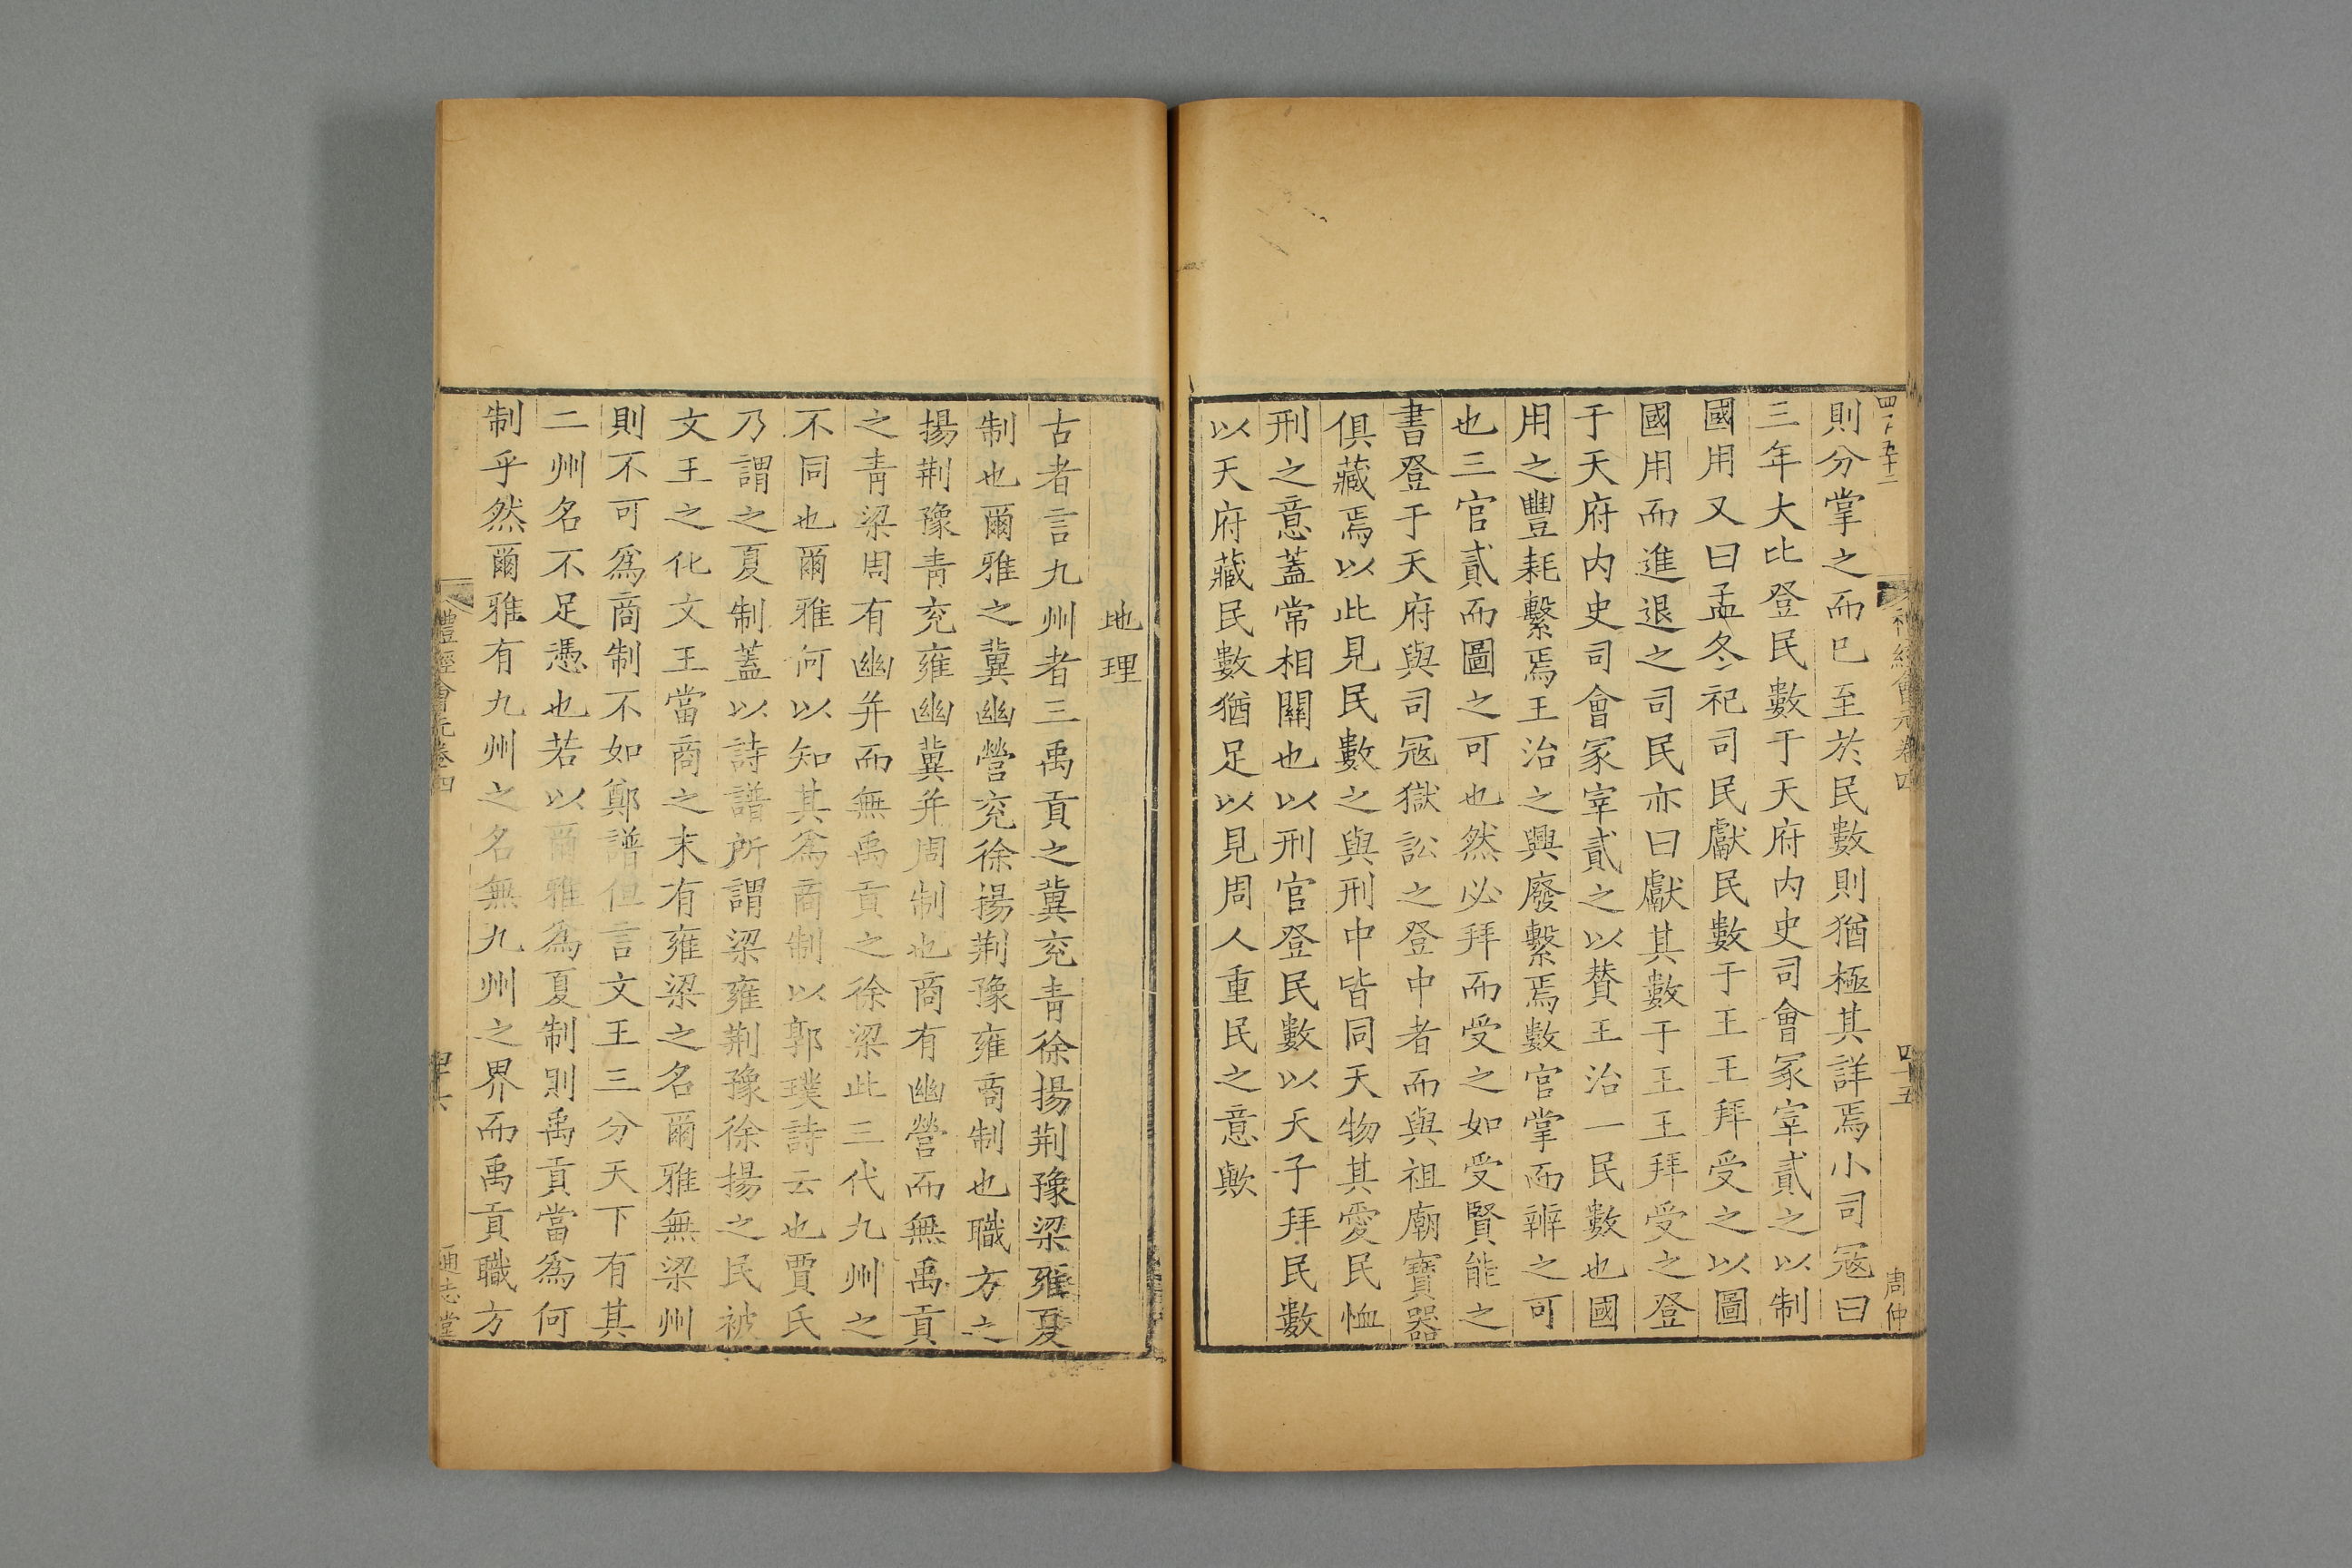 則分掌之而已至於民數則猶極其詳焉小司寇曰
三年大比登民數于天府内史司會冢宰貳之以制
國用又曰孟冬祀司民獻民數于王王拜受之以圖
國用而進退之司民亦曰獻其數于王王拜受之登
于天府内史司會冢宰貳之以賛王治一民數也國
用之豐耗繫焉王治之興廢繫焉數官掌而辨之可
也三官貳而圖之可也然必拜而受之如受賢能之
書登于天府與司寇獄訟之登中者而與祖廟寶器
俱藏焉以此見民數之與刑中皆同天物其愛民恤
刑之意蓋常相關也以刑官登民數以天子拜民數
以天府藏民數猶足以見周人重民之意歟
禮經會元卷四
四十五
周仲
地理
古者言九州者三禹貢之冀兖青徐揚荆豫梁雍夏
制也爾雅之冀幽營兖徐揚荆豫雍商制也職方之
揚荆豫青兖雍幽冀并周制也商有幽營而無禹貢
之青梁周有幽并而無禹貢之徐梁此三代九州之
不同也爾雅何以知其爲商制以郭璞詩云也賈氏
乃謂之夏制蓋以詩譜所謂梁雍荆豫徐揚之民被
文王之化文王當商之末有雍梁之名爾雅無梁州
則不可爲商制不如鄭譜但言文王三分天下有其
二州名不足憑也若以爾雅爲夏制則禹貢當爲何
制乎然爾雅有九州之名無九州之界而禹貢職方
禮經會元卷四
四十六
通志堂